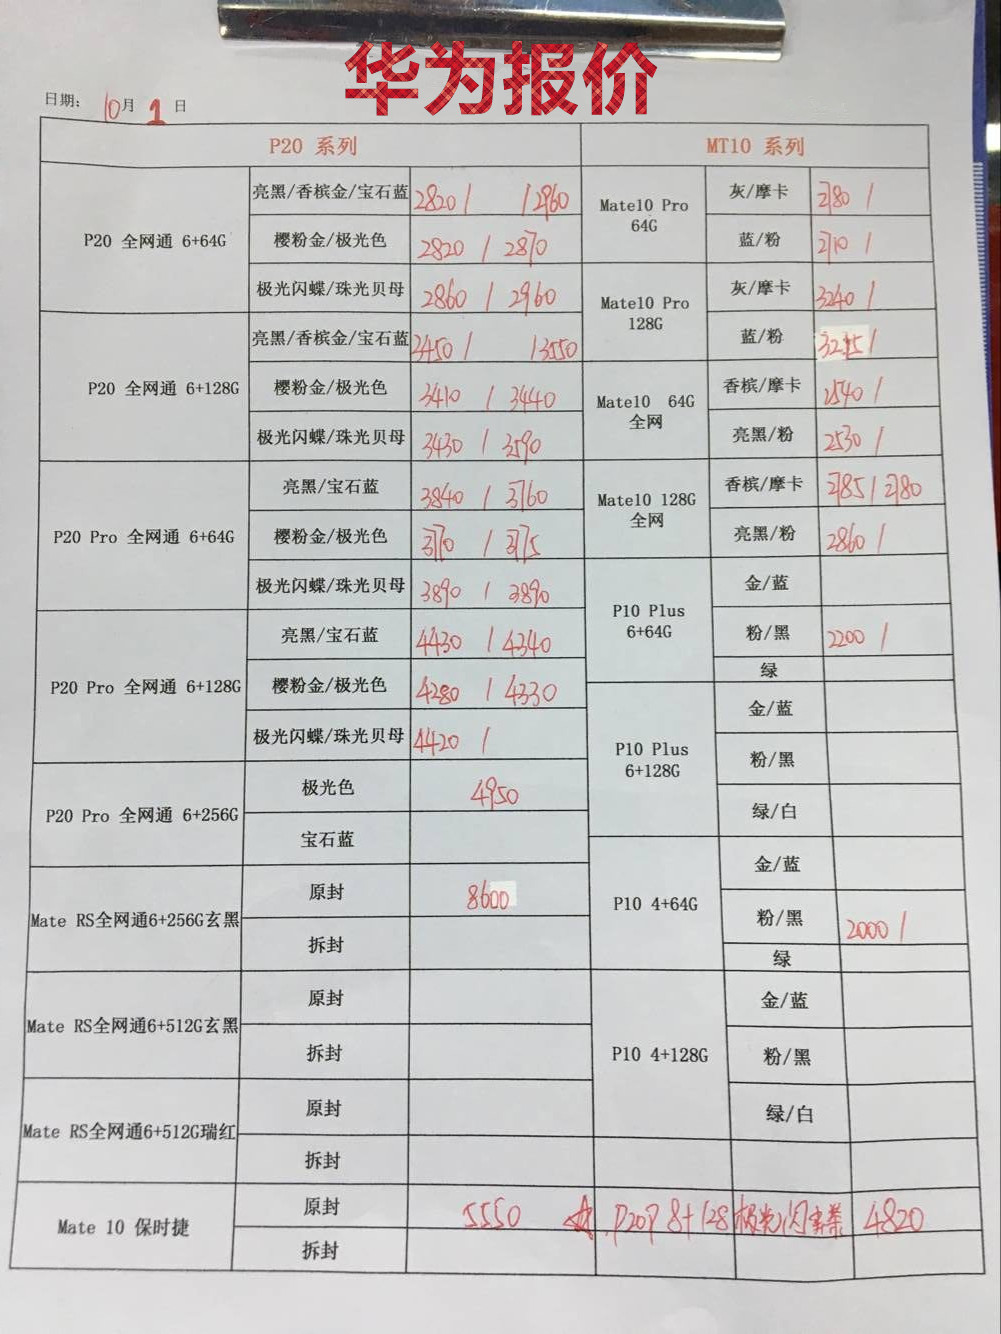 华为报价
日期: 10月1日
P20 系列 MT10 系列
P20 全网通 6+64G
亮黑/香槟金/宝石蓝 2820 / / 2960
樱粉金/极光色 2820 / 2870
极光闪蝶/珠光贝母 2860 / 2960
P20 全网通 6+128G
亮黑/香槟金/宝石蓝 3450 / / 3550
樱粉金/极光色 3410 / 3440
极光闪蝶/珠光贝母 3430 / 3590
P20 Pro 全网通 6+64G
亮黑/宝石蓝 3840 / 3760
樱粉金/极光色 3770 / 3775
极光闪蝶/珠光贝母 3890 / 3890
P20 Pro 全网通 6+128G
亮黑/宝石蓝 4430 / 4340
樱粉金/极光色 4280 / 4330
极光闪蝶/珠光贝母 4420 /
P20 Pro 全网通 6+256G
极光色 4950
宝石蓝
Mate RS全网通6+256G玄黑
原封 8600
拆封
Mate RS全网通6+512G玄黑
原封
拆封
Mate RS全网通6+512G瑞红
原封
拆封
Mate 10 保时捷
原封 5550
拆封
Mate10 Pro
64G
灰/摩卡 2780 /
蓝/粉 2710 /
Mate10 Pro
128G
灰/摩卡 3240 /
蓝/粉 /
Mate10 64G
全网
香槟/摩卡 2540 /
亮黑/粉 2530 /
Mate10 128G
全网
香槟/摩卡 2785 / 2780
亮黑/粉 2860 /
P10 Plus
6+64G
金/蓝
粉/黑 2200 /
绿
P10 Plus
6+128G
金/蓝
粉/黑
绿/白
P10 4+64G
金/蓝
粉/黑 2000 /
绿
P10 4+128G
金/蓝
粉/黑
绿/白
P20P 8+128 极光闪蝶 4820